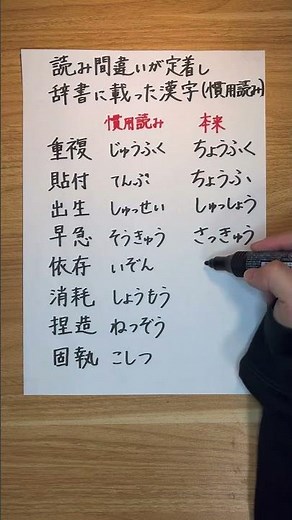 読み間違いが定着し
辞書に載った漢字(慣用読み)
慣用読み 本来
重複 じゅうふく ちょうふく
貼付 てんぷ ちょうふ
出生 しゅっせい しゅっしょう
早急 そうきゅう さっきゅう
依存 いぞん
消耗 しょうもう
捏造 ねつぞう
固執 こしつ